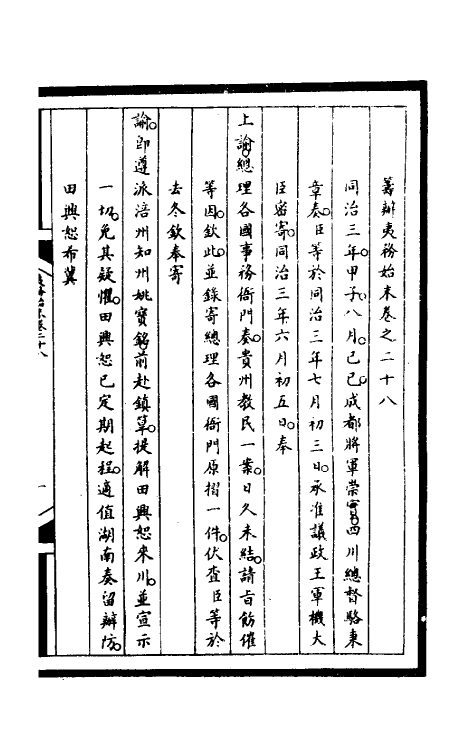 籌辦夷務始末卷之二十八
同治三年甲子八月己巳成都將軍崇實四川總督駱秉
章奏臣等於同治三年七月初三日承准議政王軍機大
臣密寄同治三年六月初五日奉
上諭總理各國事務衙門奏貴州教民一案日久未結請旨飭催
等因欽此並錄寄總理各國衙門原摺一件伏查臣等於
去冬欽奉寄
諭即遵派涪州知州姚寶銘前赴鎮筸提解田興恕來川並宣示
一切免其疑懼田興恕已定期起程適值湖南奏留辦防
田興恕布冀